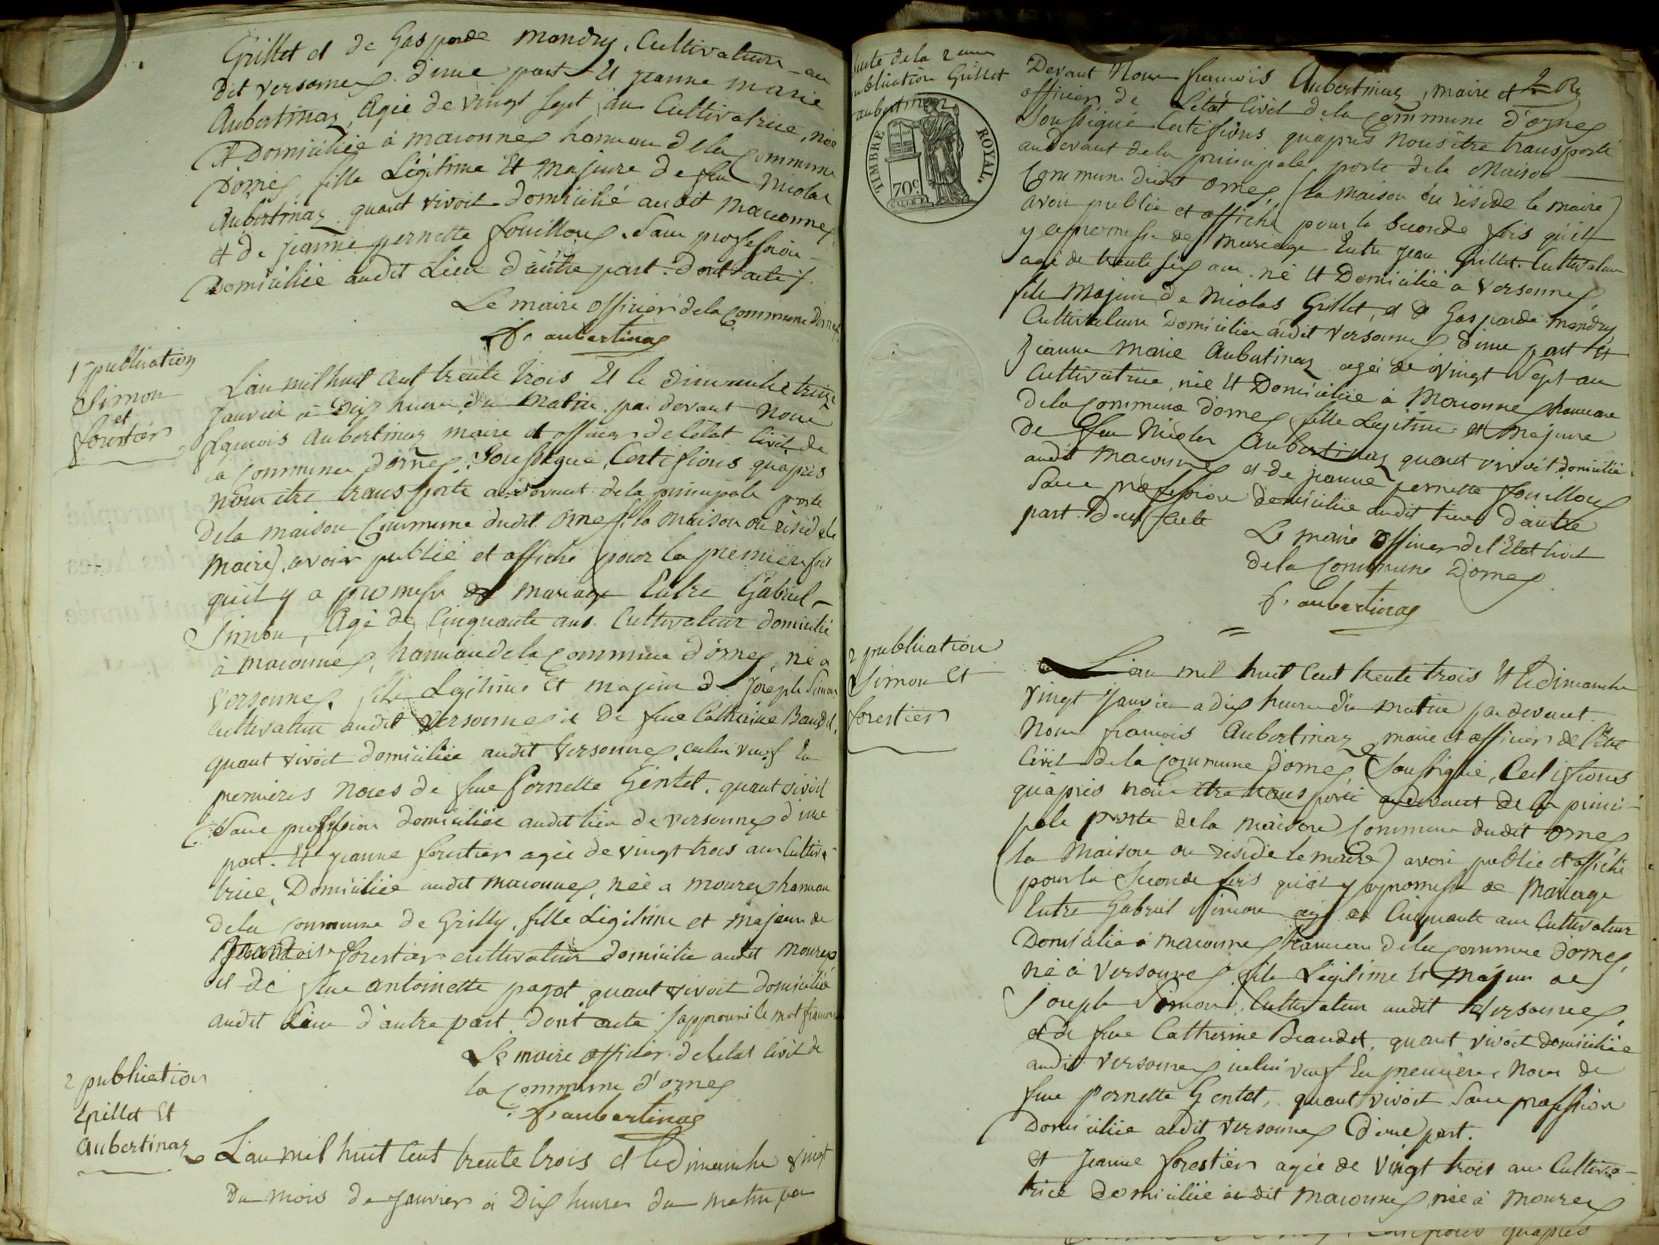 Grillet et de Gasparde Mondry, Cultivateurs au
dit versonnex d'une part Et jeanne marie
Aubertinaz, Agée de vingt sept ans Cultivatrice, née
Et Domiciliée à maconnex hameau de la Commune
D'ornex, fille Légitime Et Majeure de feu Nicolas
Aubertinaz quant vivoit domicilié audit Maconnex
et de jeanne pernette fouilloux. Sans profession
Domiciliée audit Lieu d'autre part. dont acte
Le maire officier de la Commune d'ornex
f. aubertinaz
1re publication
Simon
et
forestier
L'an mil huit cent trente trois Et le dimanche treize
Janvier à Dix heures du Matin par devant Nous
françois Aubertinaz maire et officier de l'état Civil de
la Commune d'ornex Soussigné, Certifions qu'après
Nous être transporté au devant de la principale porte
De la maison Commune dudit Ornex (la maison ou réside le
Maire) avoir publié et affiché pour la première fois
qu'il y a promesse de mariage Entre Gabriel
Simon, Agé de Cinquante ans Cultivateur domicilié
à maconnex, hameau de la Commune d'ornex, né a
Versonnex, fils Légitime Et majeur de Joseph Simon
Cultivateur audit Versonnex et de feue Catherine Baudet,
quant vivoit domiciliée audit Versonnex, icelui veuf En
premières Noces de feue Pernette Gentet. quant vivoit
Sans profession domiciliée audit lieu de versonnex d'une
part. Et jeanne forestier agée de vingt trois ans Cultiva-
trice, Domiciliée audit maconnex, née a mourex hameau
de la commune de Grilly, fille Légitime et majeure de
françois forestier cultivateur domicilié audit Mourex
et de feue antoinette pagot quant vivoit domiciliée
audit Lieu d'autre part. dont acte j'approuve le mot françois
Le maire officier de l'état Civil de
la Commune d'ornex
f. aubertinaz
2 publication
Grillet Et
Aubertinaz
L'an mil huit Cent trente trois et le Dimanche vingt
Du mois de Janvier à Dix heures du matin par
Suite de la 2eme
publication Grillet
aubertinaz
TIMBRE ROYAL.
70c
Devant Nous françois Aubertinaz, maire et
officier de L'état Civil de la Commune d'ornex
Soussigné Certifions qu'après Nous être transporté
au devant de la principale porte de la Maison
Commune dudit Ornex (la maison où réside le maire)
avoir publié et affiché pour la Seconde fois qu'il
y a promesse de Mariage Entre Jean Grillet. Cultivateur
agé de trente six ans né Et Domicilié à Versonnex
fils Majeur de Nicolas Grillet, et de Gasparde Mondry
Cultivateurs Domiciliés audit Versonnex d'une part Et
Jeanne Marie Aubertinaz agée de Vingt Sept ans
Cultivatrice, née Et Domiciliée à Maconnex hameau
de la Commune d'ornex fille Légitime et Majeure
de feu Nicolas Aubertinaz quant vivoit domicilié
audit Maconnex et de jeanne pernette fouilloux
Sans profession domiciliée audit lieu d'autre
part. Dont acte
Le maire officier de l'Etat Civil
de la Commune D'ornex
f. aubertinaz
2 publication
Simon Et
forestier
L'an mil huit Cent trente trois Et le Dimanche
vingt Janvier a dix heures du matin par devant
Nous françois Aubertinaz maire et officier de l'état
Civil de la Commune d'ornex Soussigné, Certifions
qu'après nous être transporté au devant de la princi-
pale porte de la maison Commune dudit Ornex
(la Maison ou réside le maire) avoir publié et affiché
pour la Seconde fois qu'il y a promesse de Mariage
Entre Gabriel Simon agé de Cinquante ans Cultivateur
Domicilié à maconnex hameau de la commune d'ornex,
né à Versonnex fils Légitime Et Majeur de
Joseph Simon, Cultivateur audit Versonnex
et de feue Catherine Beaudet, quant vivoit domiciliée
audit Versonnex icelui veuf En premières Noces de
feue Pernette Gentet, quant vivoit Sans profession
Domiciliée audit Versonnex d'une part.
et Jeanne forestier agée de vingt trois ans Cultiva-
trice domiciliée audit maconnex, née à Mourex
qu'après